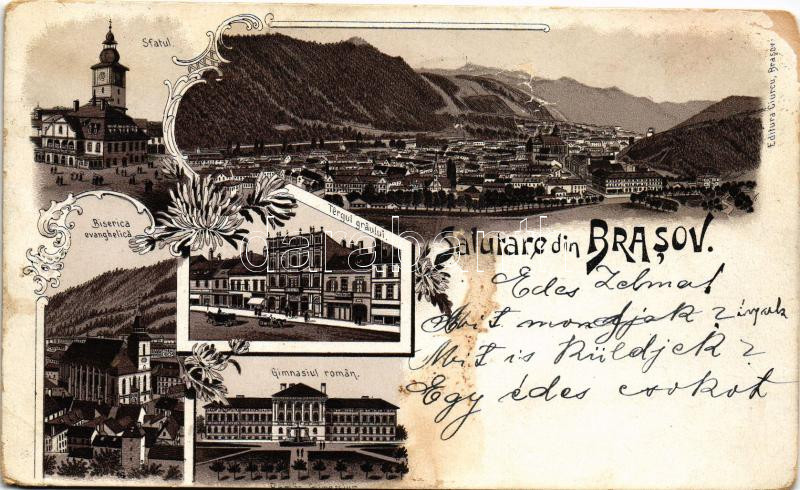 Sfatul.
Editura Ciurcu, Brașov.
Biserica
evanghelică
Têrgul grâului
Salutare din BRAȘOV.
Gimnasiul român.
darabanth
Edes Zelma!
Mit mondjak
Mit is küldjek
Egy édes csokot